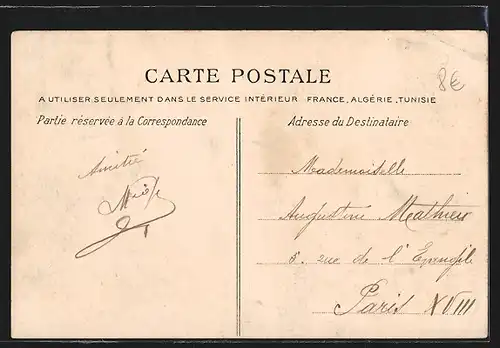 CARTE POSTALE
A UTILISER SEULEMENT DANS LE SERVICE INTÉRIEUR FRANCE, ALGÉRIE, TUNISIE
Partie réservée à la Correspondance
Adresse du Destinataire
8€
Amitié
Mademoiselle
Augustine Mathieu
5. rue de l'Evangile
Paris XVIII